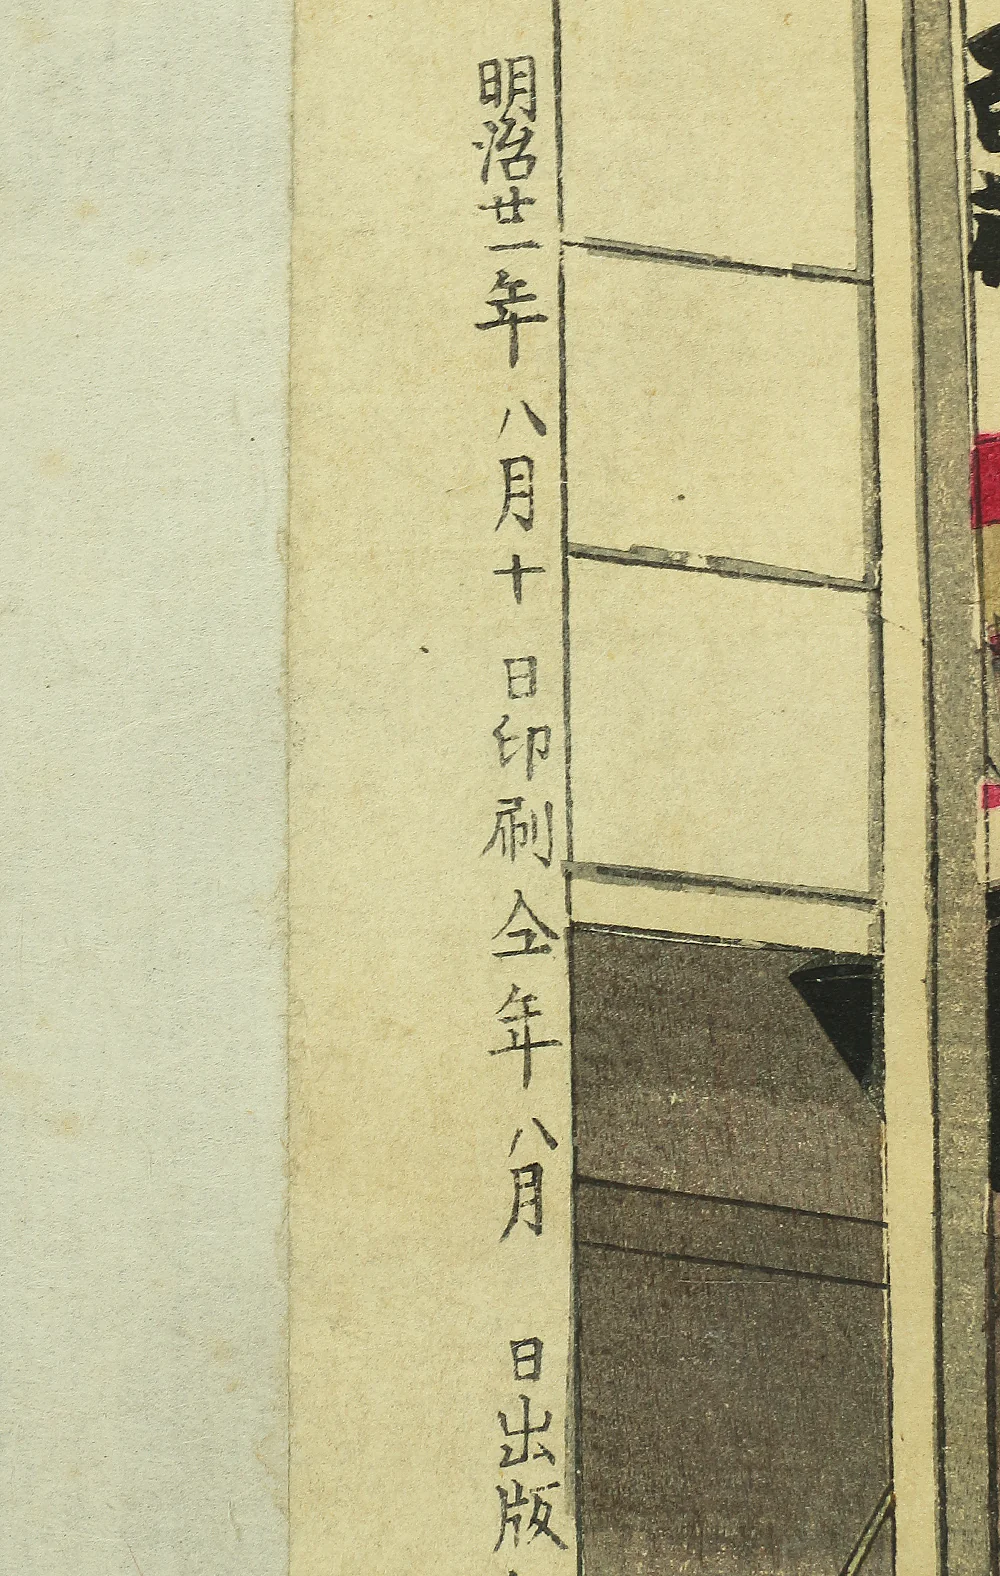 明治廿一年八月十日印刷仝年八月 日出版